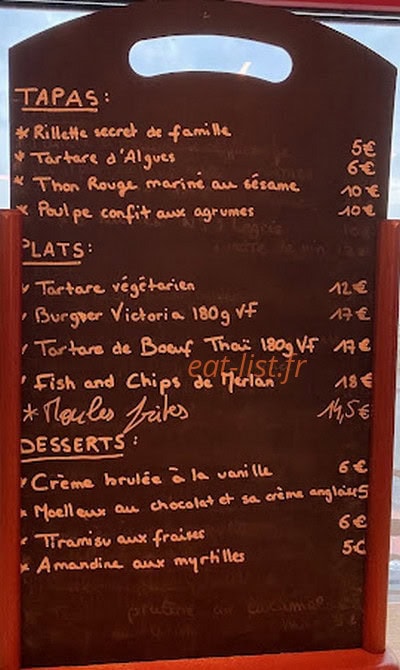 TAPAS:
* Rillette secret de famille 5€
* Tartare d'Algues 6€
* Thon Rouge mariné au sésame 10€
* Poulpe confit aux agrumes 10€
PLATS:
* Tartare végétarien 12€
* Burguer Victoria 180g VF 17€
* Tartare de Boeuf Thaï 180g VF 17€
eat-list.fr
* Fish and Chips de Merlan 18€
* Moules frites 14,5€
DESSERTS:
* Crème brulée à la vanille 6€
* Moelleux au chocolat et sa crème anglaise 5
* Tiramisu aux fraises 6€
* Amandine aux myrtilles 5€